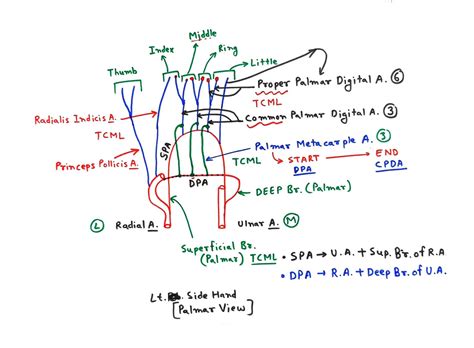 Middle
Index
Ring
Little
Thumb
Proper Palmar Digital A. (6)
TCML
Radialis Indicis A.
TCML
Common Palmar Digital A. (3)
Princeps Pollicis A.
SPA
Palmar Metacarple A. (3)
TCML
START → END
DPA CPDA
DPA
DEEP Br. (Palmar)
(L) Radial A.
Ulnar A. (M)
Superficial Br.
(Palmar) TCML
• SPA → U.A. + Sup. Br. of R.A
• DPA → R.A. + Deep Br. of U.A.
Lt. Side Hand
[Palmar View]